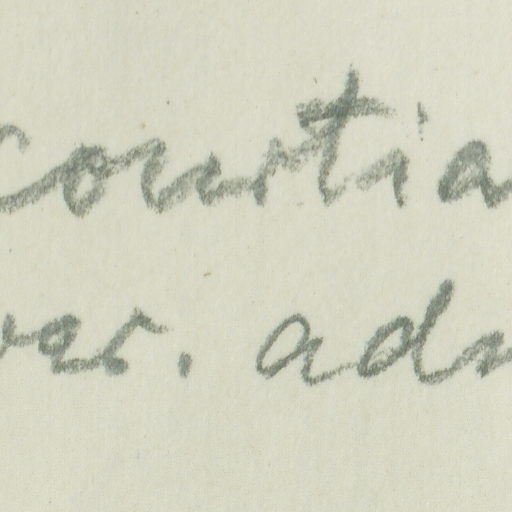 courtia
var. adn